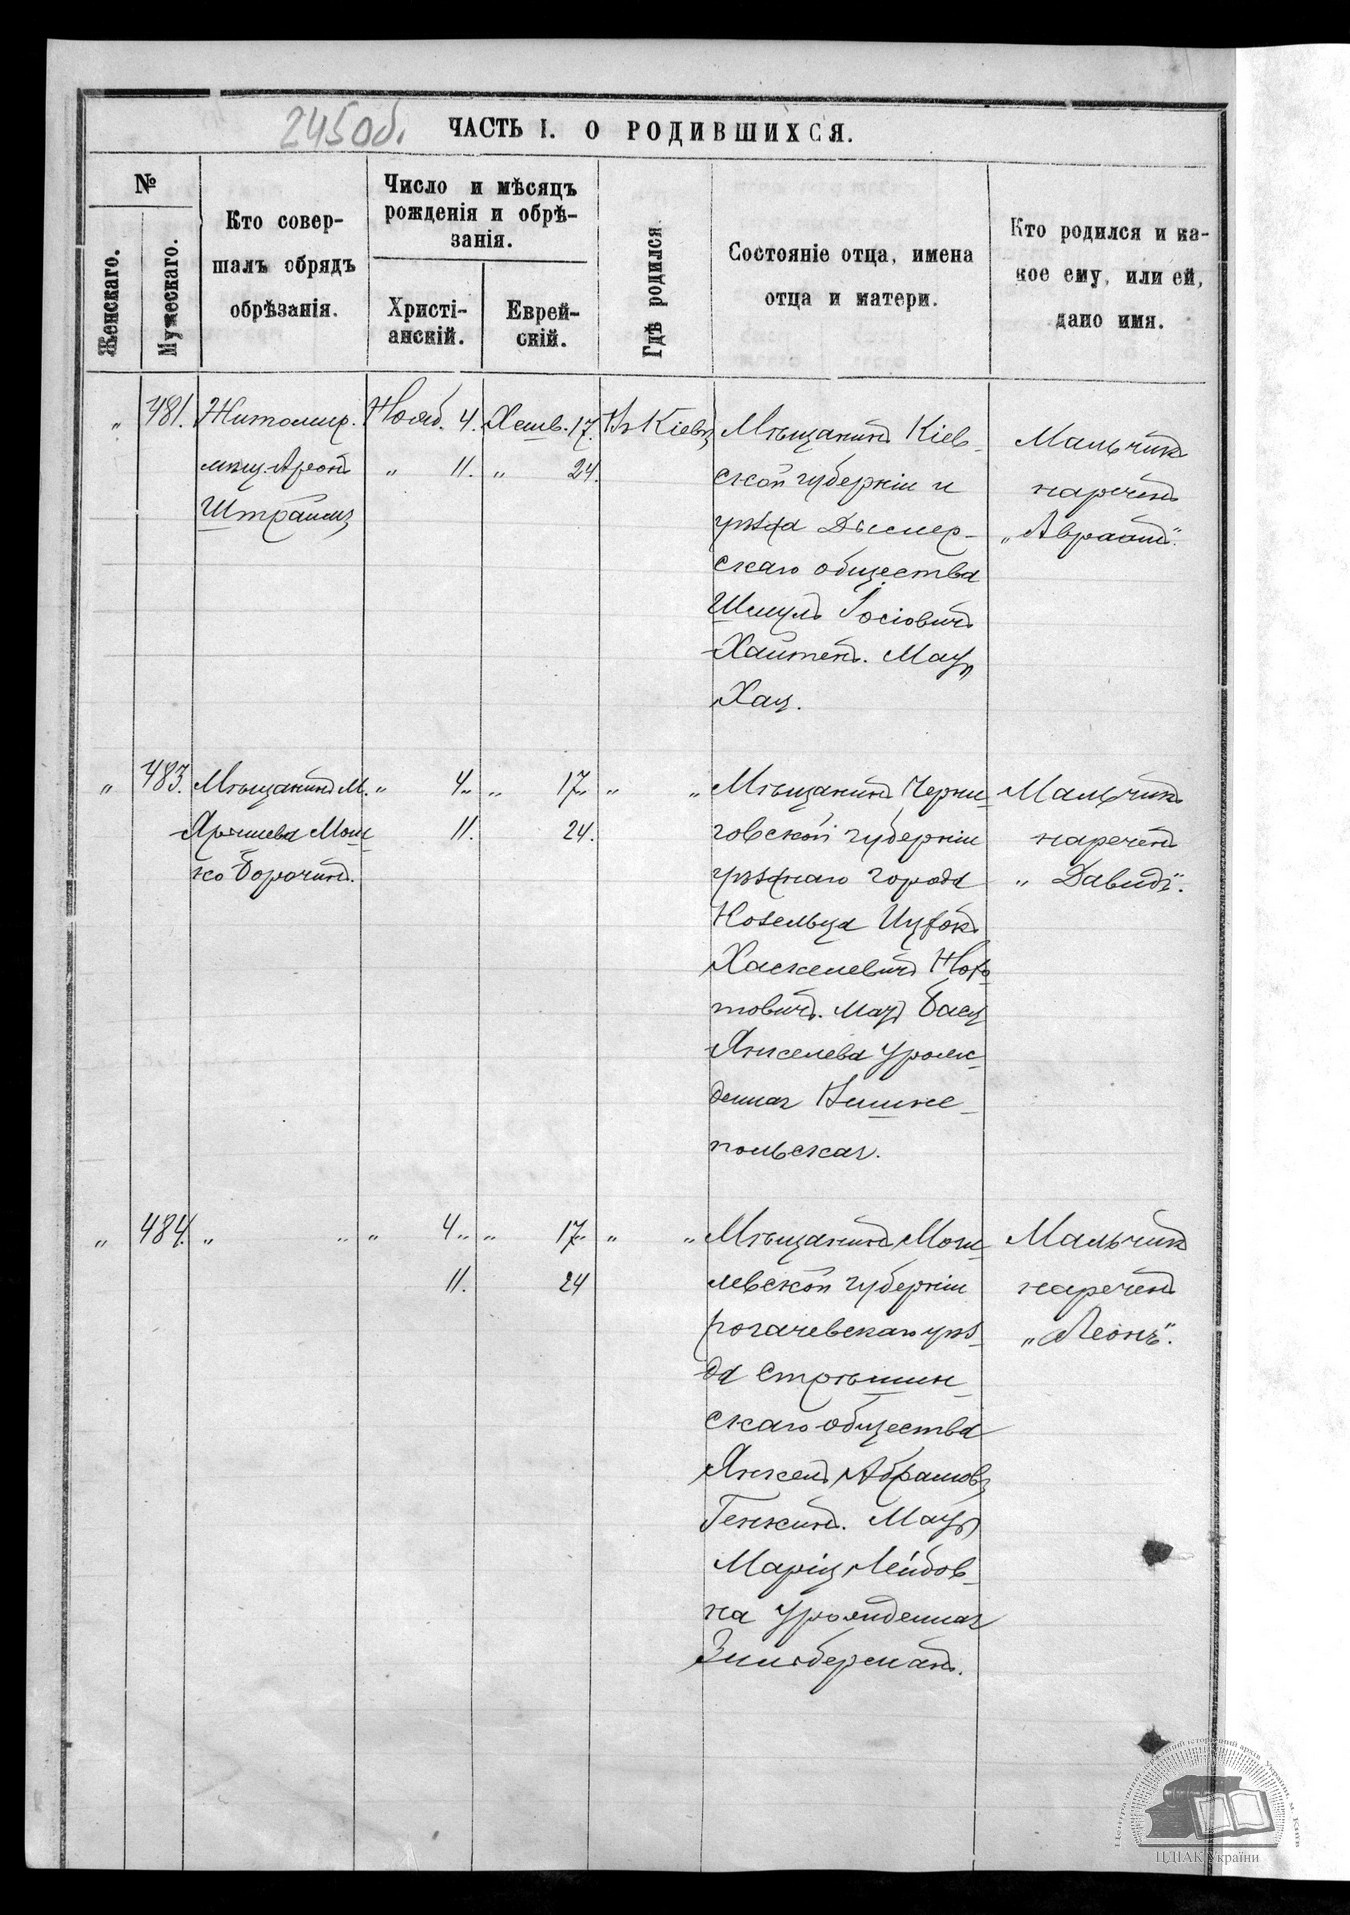 245об.
ЧАСТЬ I. О РОДИВШИХСЯ.
№
Женскаго.
Мужескаго.
Кто совер-
шалъ обрядъ
обрѣзанія.
Число и мѣсяцъ
рожденія и обрѣ-
занія.
Христі-
анскій.
Еврей-
скій.
Гдѣ родился.
Состояніе отца, имена
отца и матери.
Кто родился и ка-
кое ему, или ей,
дано имя.
„ 481.
Житомир.
мѣщ. Аронъ
Нояб. 4.
„ 11.
Хешв. 17.
„ 24.
Въ Кіевѣ
Мѣщанинъ Кіев-
ской губерніи и
уѣзда Дымер-
скаго общества
Шмуль Іосіовичъ
Мать
Мальчикъ
нареченъ
„Авраамъ".
„ 483.
Мѣщанинъ М.
Ярышева Мош-
ко Борочинъ.
„ 4„
11.
„ 17„
24.
„ „
Мѣщанинъ Черни-
говской губерніи
уѣзднаго города
Козельца Ицхокъ
Хаскелевичъ Ното-
товичъ. Мать Бася
Янкелева урож-
денная
польская.
Мальчикъ
нареченъ
„Давидъ".
„ 484.
„ „
„ 4„
11.
„ 17„
24
„ „
Мѣщанинъ Моги-
левской губерніи
Рогачевскаго уѣз-
да Стрѣшин-
скаго общества
Янкель Абрамовъ
Генкинъ. Мать
Марія Лейбов-
на урожденная
Зильберманъ.
Мальчикъ
нареченъ
„Леонъ".
Центральний державний історичний архів України, м. Київ
ЦДІАК України